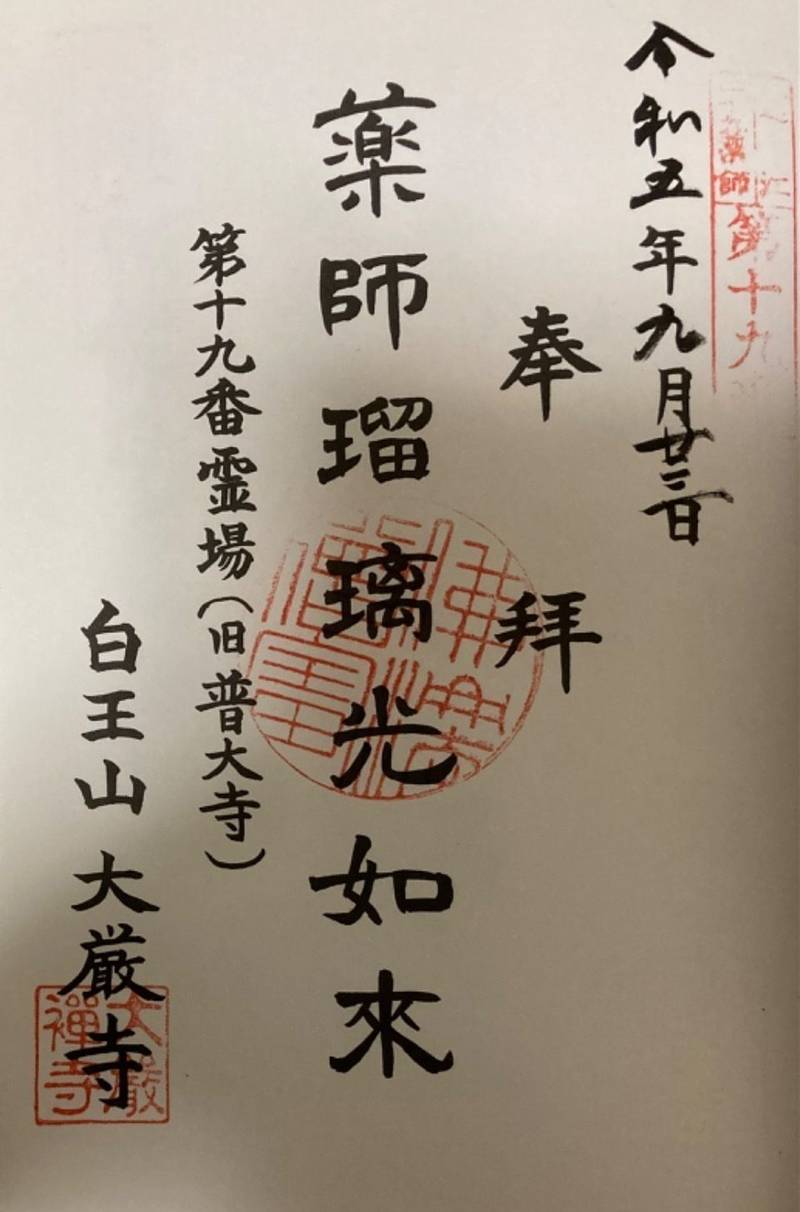 令和五年九月廿三日
奉拝
薬師瑠璃光如來
第十九番霊場（旧普大寺）
白王山大厳寺
薬師第十九
佛法僧寶
大巖禪寺